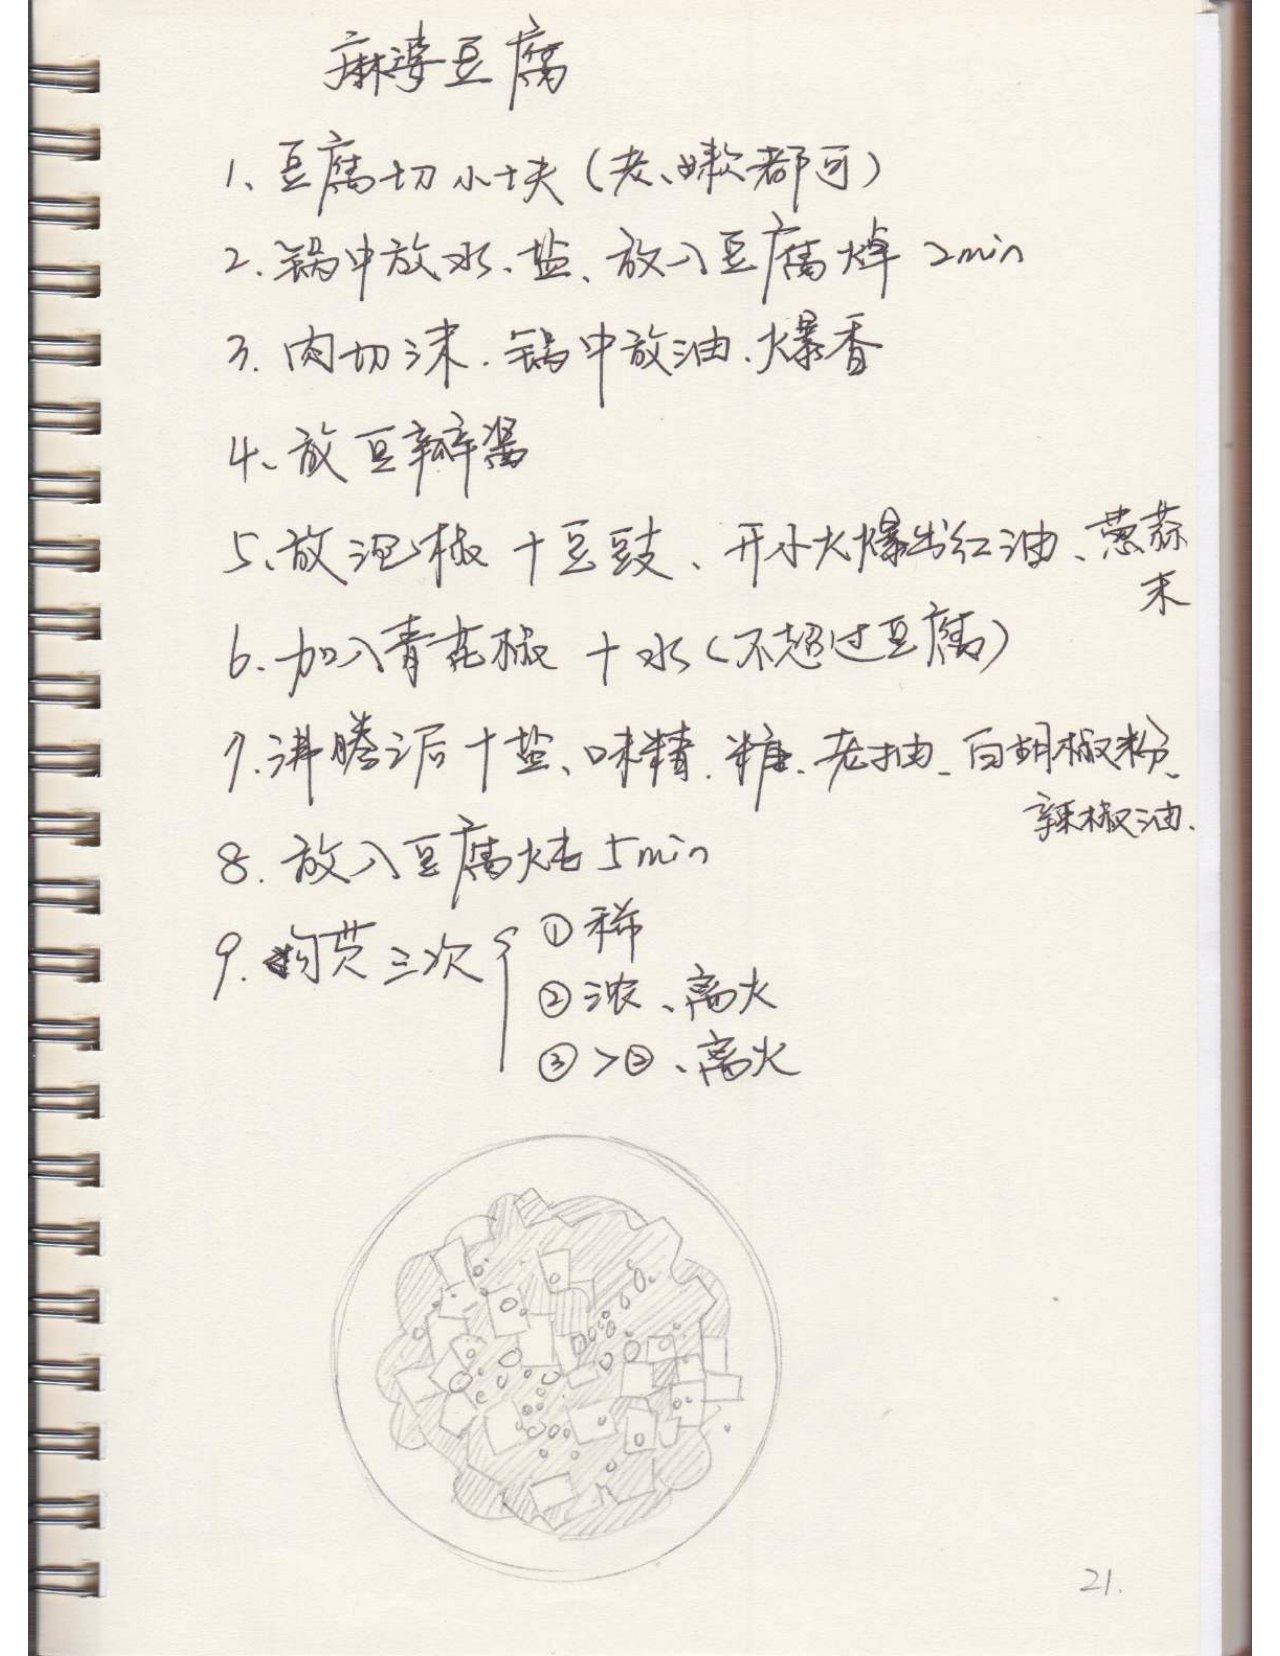 麻婆豆腐
1、豆腐切小块(老、嫩都可)
2.锅中放水、盐、放入豆腐焯 2min
3.肉切沫.锅中放油、爆香
4、放豆瓣酱
5、放泡椒+豆豉、开小火爆出红油、葱蒜
末
6.加入青花椒+水(不超过豆腐)
7.沸腾后+盐、味精.糖.老抽、白胡椒粉、
辣椒油.
8.放入豆腐炖 5min
9.勾芡三次 ①稀
②浓、离火
③>②、离火
21.